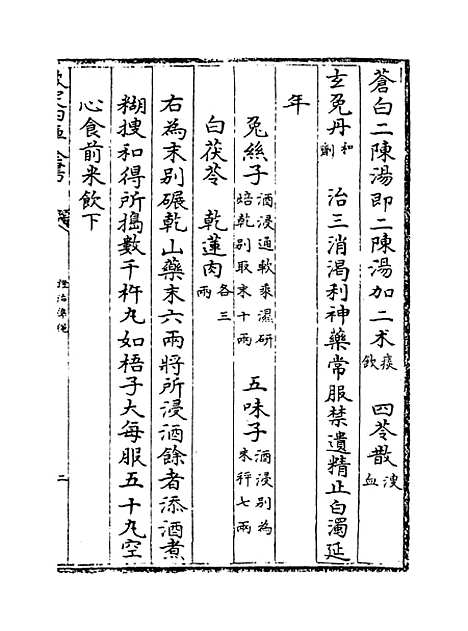 蒼白二陳湯即二陳湯加二朮痰飲 四苓散溲血
玄兔丹和劑 治三消渴利神藥常服禁遺精止白濁延
年
兔絲子酒浸通軟乘濕研焙乾別取末十兩 五味子酒浸別為末秤七兩
白茯苓 乾蓮肉各三兩
右為末別碾乾山藥末六兩將所浸酒餘者添酒煮
糊搜和得所搗數千杵丸如梧子大每服五十丸空
心食前米飲下
欽定四庫全書
證治準繩
二